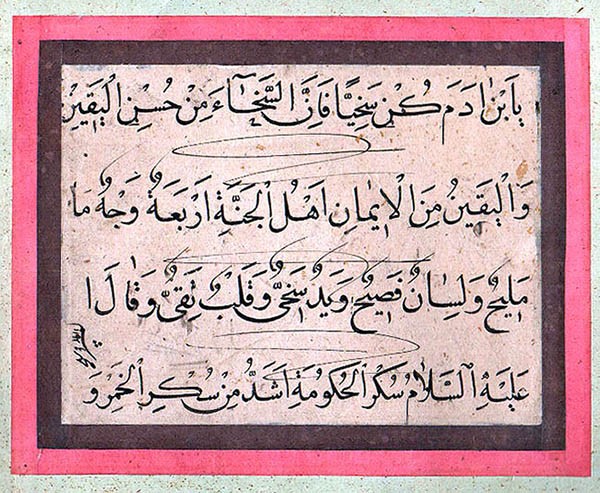 يَا بْنَ اٰدَمَ كُنْ سَخِيًّا فَاِنَّ السَّخَٓاءَ مِنْ حُسْنِ الْيَقِيْنِ
وَالْيَقِيْنُ مِنَ الْاِيْمَانِ اَهْلُ الْجَنَّةِ اَرْبَعَةٌ وَجْهٌ مَا
مَلِيْحٌ وَلِسَانٌ فَصِيْحٌ وَيَدٌ سَخِيٌّ وَقَلْبٌ نَقِيٌّ وَقَالَ ا
عَلَيْهِ السَّلَامُ سُكْرُ الْحُكُومَةِ اَشَدُّ مِنْ سُكْرِ الْخَمْرِ وَ